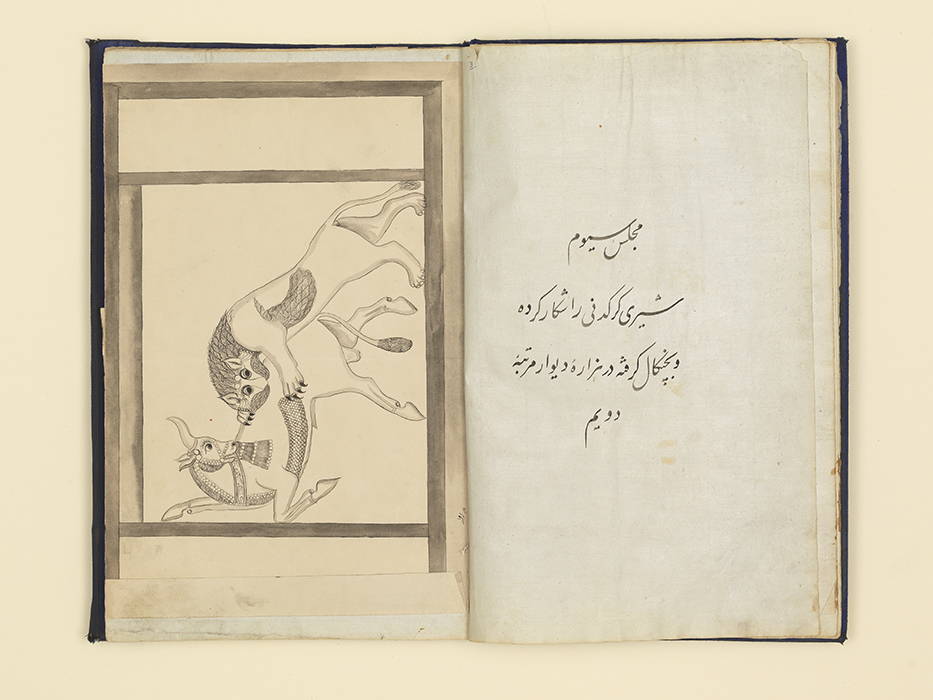 مجلس سیوم
شیری کرکدنی را شکار کرده
و بچنکال کرفته در هزارهٔ دیوار مرتبهٔ
دویم